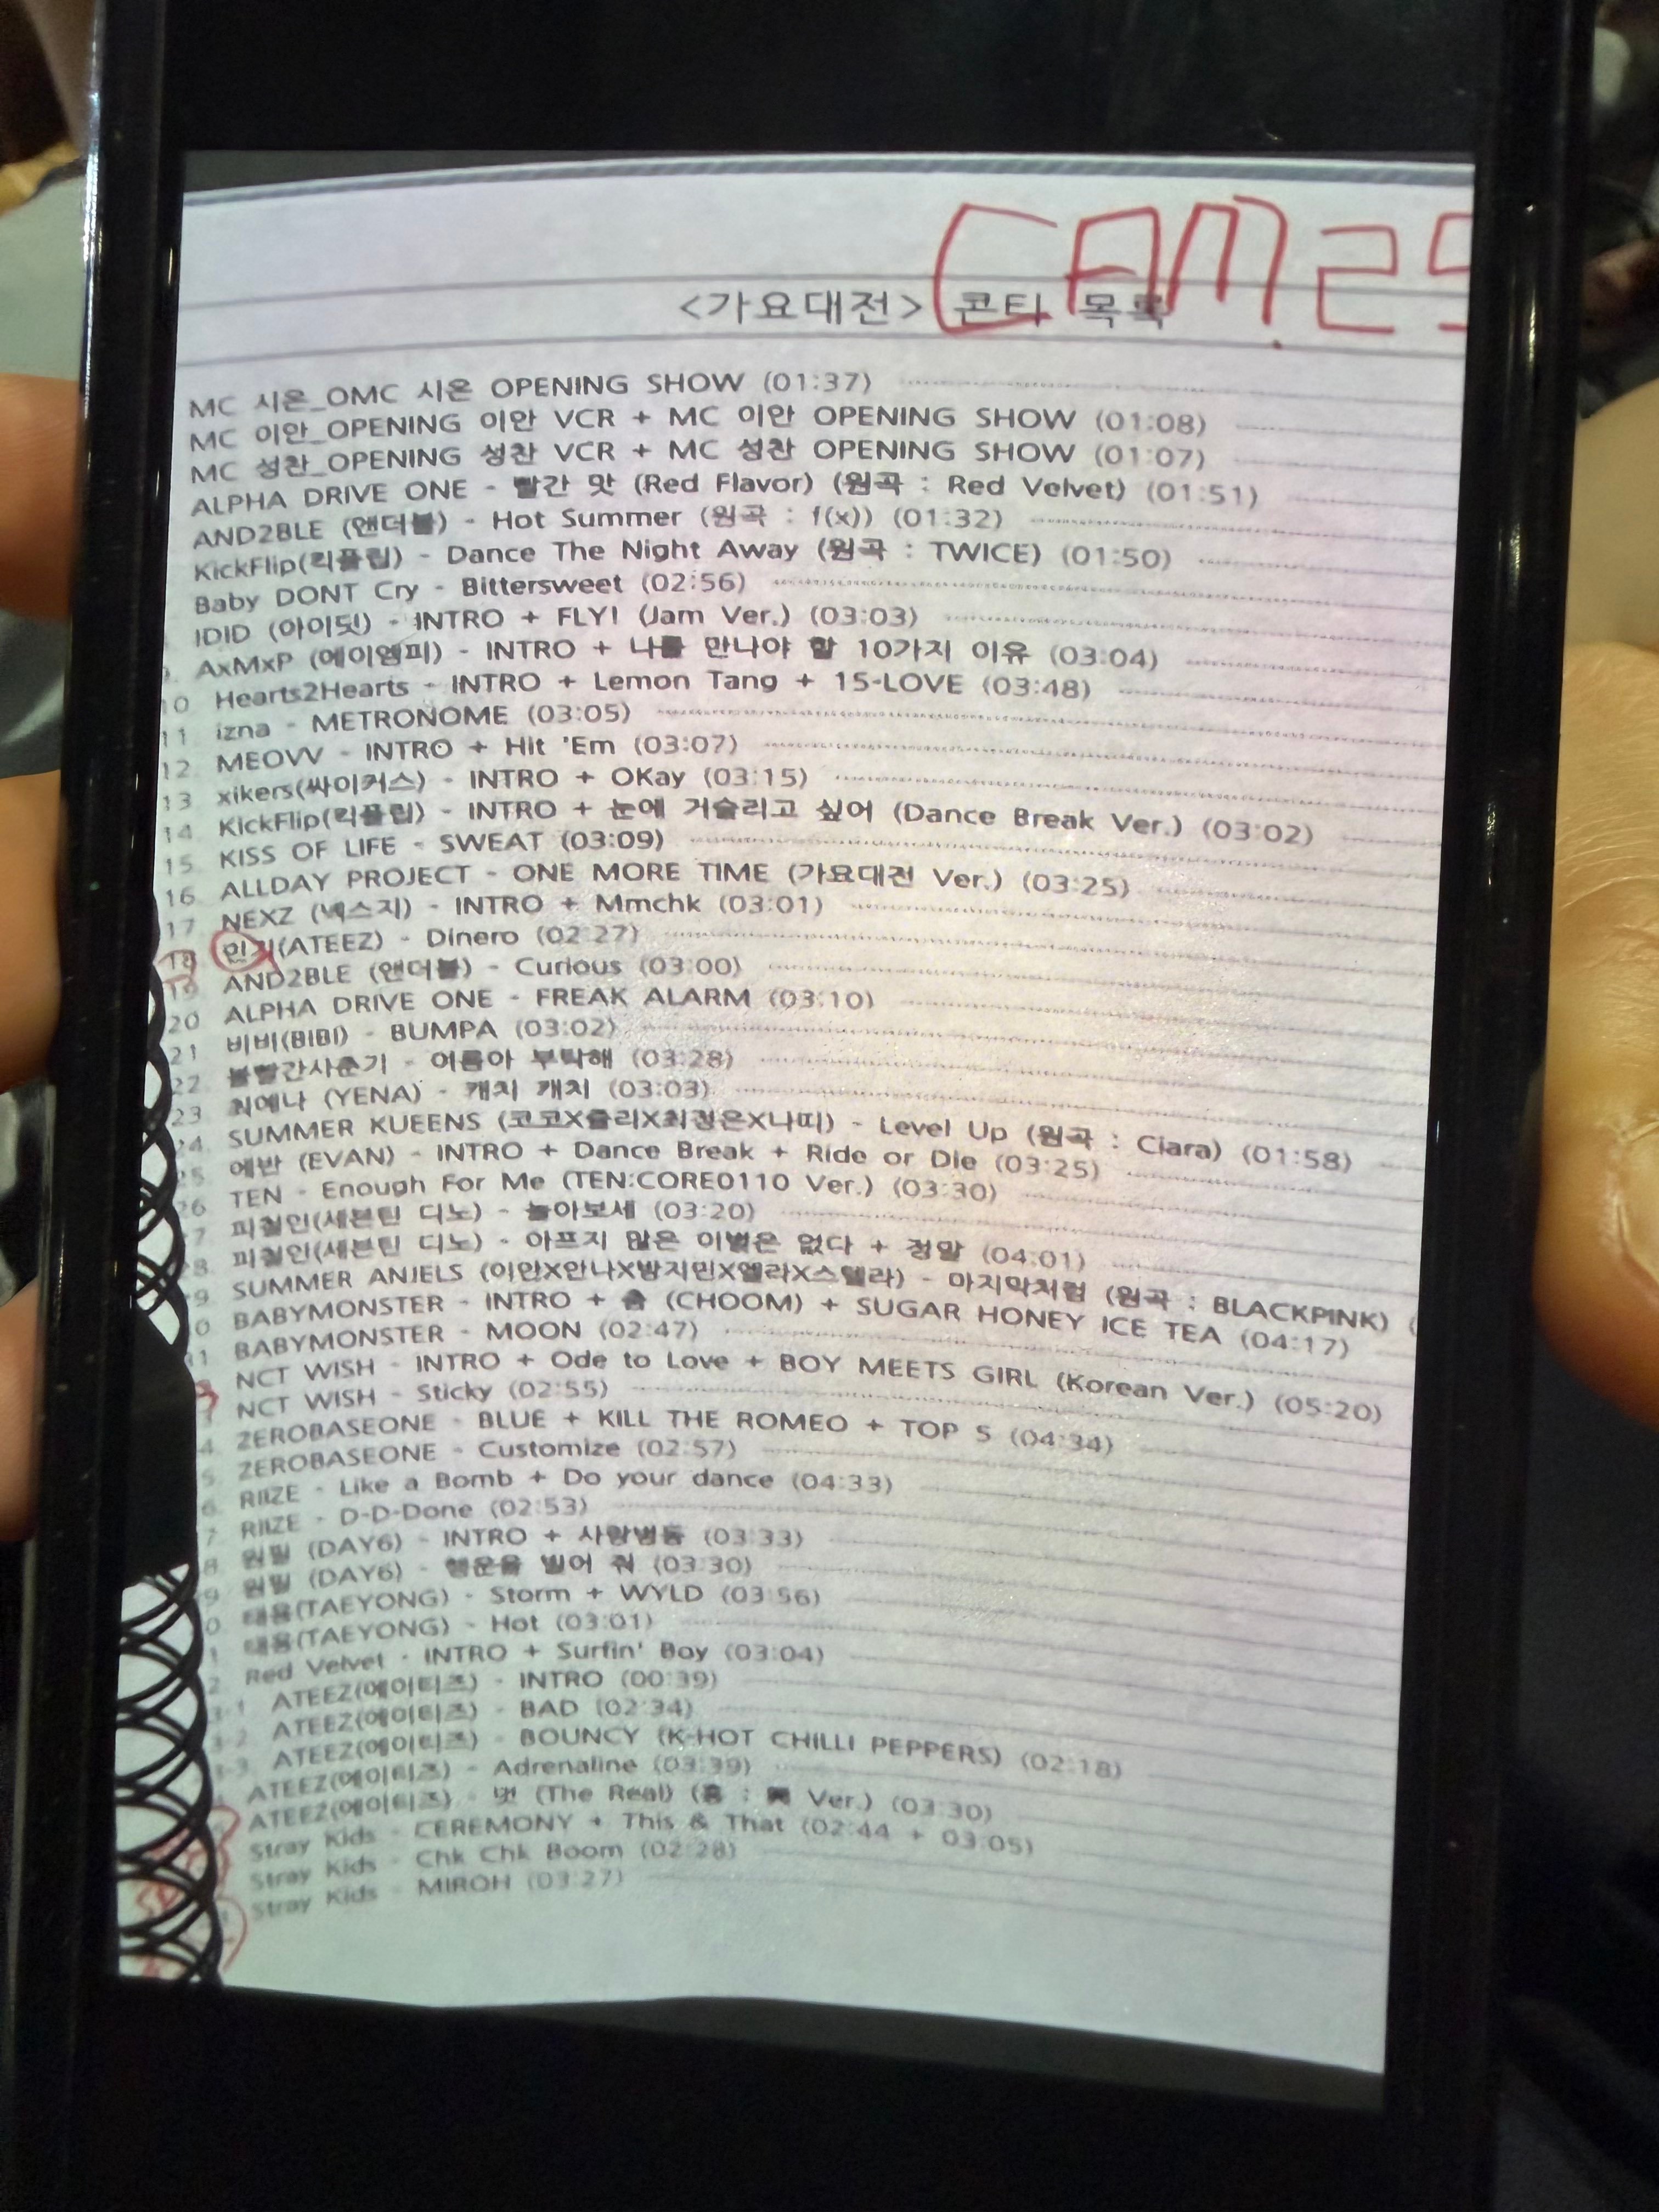 CAM.25
<가요대전> 콘티 목록
MC 시온_OMC 시온 OPENING SHOW (01:37)
MC 이안_OPENING 이안 VCR + MC 이안 OPENING SHOW (01:08)
MC 성찬_OPENING 성찬 VCR + MC 성찬 OPENING SHOW (01:07)
ALPHA DRIVE ONE - 빨간 맛 (Red Flavor) (원곡 : Red Velvet) (01:51)
AND2BLE (앤더블) - Hot Summer (원곡 : f(x)) (01:32)
KickFlip(킥플립) - Dance The Night Away (원곡 : TWICE) (01:50)
Baby DONT Cry - Bittersweet (02:56)
IDID (아이딧) - INTRO + FLY! (Jam Ver.) (03:03)
AxMxP (에이엠피) - INTRO + 나를 만나야 할 10가지 이유 (03:04)
10 Hearts2Hearts - INTRO + Lemon Tang + 15-LOVE (03:48)
11 izna - METRONOME (03:05)
12. MEOVV - INTRO + Hit 'Em (03:07)
13 xikers(싸이커스) - INTRO + OKay (03:15)
14. KickFlip(킥플립) - INTRO + 눈에 거슬리고 싶어 (Dance Break Ver.) (03:02)
15. KISS OF LIFE - SWEAT (03:09)
16 ALLDAY PROJECT - ONE MORE TIME (가요대전 Ver.) (03:25)
17 NEXZ (넥스지) - INTRO + Mmchk (03:01)
18 민기(ATEEZ) - Dinero (02:27)
19 AND2BLE (앤더블) - Curious (03:00)
20 ALPHA DRIVE ONE - FREAK ALARM (03:10)
21 비비(BIBI) - BUMPA (03:02)
22 볼빨간사춘기 - 여름아 부탁해 (03:28)
23 최예나 (YENA) - 캐치 캐치 (03:03)
24 SUMMER KUEENS (코코X쥴리X최정은X나띠) - Level Up (원곡 : Ciara) (01:58)
25 에반 (EVAN) - INTRO + Dance Break + Ride or Die (03:25)
26 TEN - Enough For Me (TEN:CORE0110 Ver.) (03:30)
7 피철인(세븐틴 디노) - 놀아보세 (03:20)
8 피철인(세븐틴 디노) - 아프지 않은 이별은 없다 + 정말 (04:01)
9 SUMMER ANJELS (이안X안나X방지민X엘라X스텔라) - 마지막처럼 (원곡 : BLACKPINK) (
0 BABYMONSTER - INTRO + 춤 (CHOOM) + SUGAR HONEY ICE TEA (04:17)
1 BABYMONSTER - MOON (02:47)
NCT WISH - INTRO + Ode to Love + BOY MEETS GIRL (Korean Ver.) (05:20)
NCT WISH - Sticky (02:55)
4 ZEROBASEONE - BLUE + KILL THE ROMEO + TOP 5 (04:34)
5 ZEROBASEONE - Customize (02:57)
6 RIIZE - Like a Bomb + Do your dance (04:33)
7 RIIZE - D-D-Done (02:53)
8 원필 (DAY6) - INTRO + 사랑병동 (03:33)
9 원필 (DAY6) - 행운을 빌어 줘 (03:30)
0 태용(TAEYONG) - Storm + WYLD (03:56)
1 태용(TAEYONG) - Hot (03:01)
2 Red Velvet - INTRO + Surfin' Boy (03:04)
3-1 ATEEZ(에이티즈) - INTRO (00:39)
3-2 ATEEZ(에이티즈) - BAD (02:34)
3-3 ATEEZ(에이티즈) - BOUNCY (K-HOT CHILLI PEPPERS) (02:18)
ATEEZ(에이티즈) - Adrenaline (03:39)
ATEEZ(에이티즈) - 멋 (The Real) (흥 : 興 Ver.) (03:30)
Stray Kids - CEREMONY + This & That (02:44 + 03:05)
Stray Kids - Chk Chk Boom (02:28)
Stray Kids - MIROH (03:27)